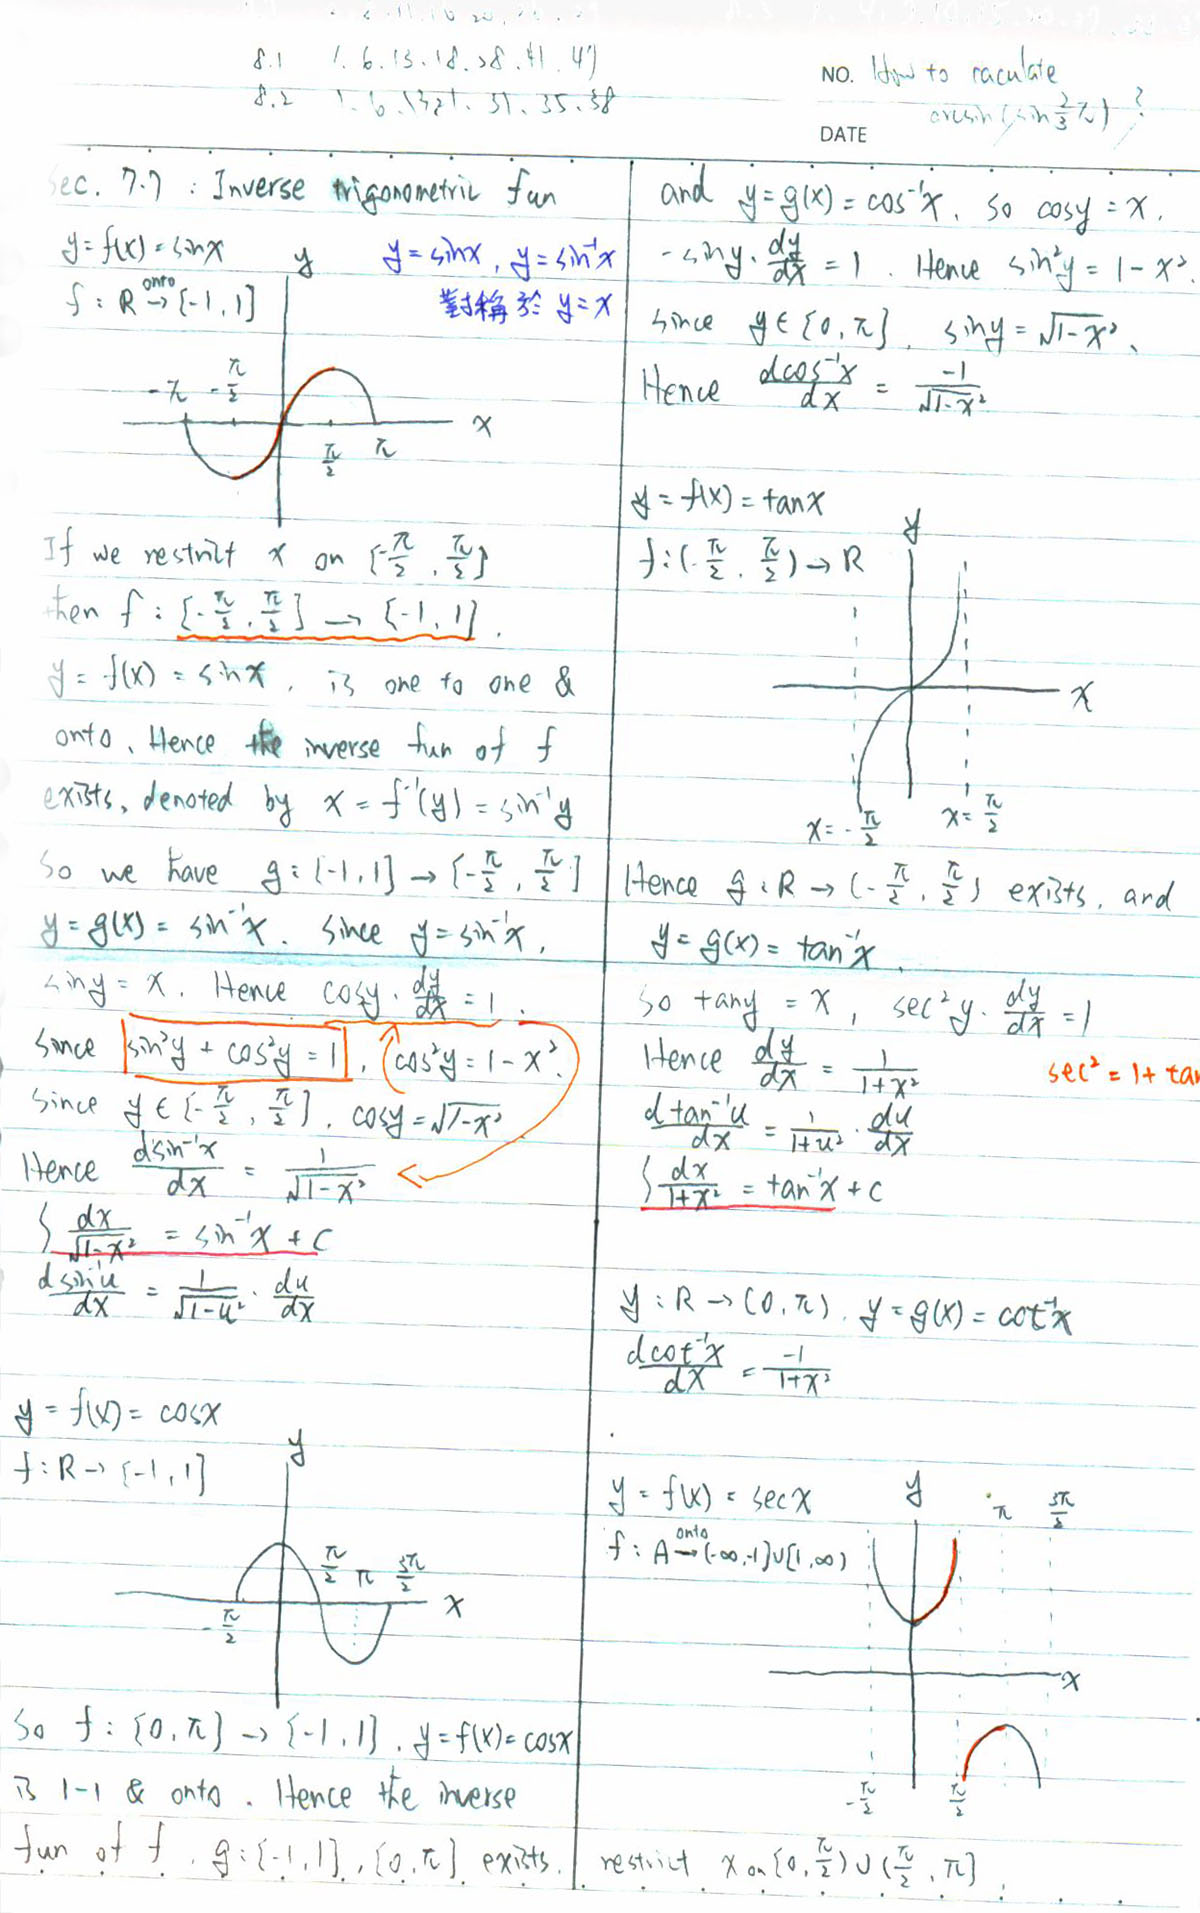 8.1 1. 6. 13. 18. 28. 41. 47
8.2 1. 6. 31. 35. 38
NO. How to raculate
arcsin(sin 2/3 π) ?
DATE
Sec. 7.7 : Inverse trigonometric fun
y = f(x) = sinx
y
y = sinx, y = sin⁻¹x
f : R →(onto) [-1, 1]
對稱於 y = x
-π -π/2
x
π/2 π
If we restrict x on [-π/2, π/2]
then f : [-π/2, π/2] → [-1, 1].
y = f(x) = sinx, is one to one &
onto. Hence the inverse fun of f
exists, denoted by x = f⁻¹(y) = sin⁻¹y
So we have g : [-1, 1] → [-π/2, π/2]
y = g(x) = sin⁻¹x. Since y = sin⁻¹x,
siny = x. Hence cosy · dy/dx = 1.
Since sin²y + cos²y = 1, cos²y = 1 - x².
Since y ∈ [-π/2, π/2], cosy = √(1-x²)
Hence dsin⁻¹x/dx = 1/√(1-x²)
∫ dx/√(1-x²) = sin⁻¹x + C
dsin⁻¹u/dx = 1/√(1-u²) · du/dx
y = f(x) = cosx
y
f : R → [-1, 1]
π/2 π 3π/2
x
-π/2
So f : [0, π] → [-1, 1]. y = f(x) = cosx
is 1-1 & onto. Hence the inverse
fun of f, g : [-1, 1], [0, π] exists.
and y = g(x) = cos⁻¹x. So cosy = x.
-siny · dy/dx = 1. Hence sin²y = 1 - x².
Since y ∈ [0, π], siny = √(1-x²).
Hence dcos⁻¹x/dx = -1/√(1-x²)
y = f(x) = tanx
y
f : (-π/2, π/2) → R
x
x = -π/2 x = π/2
Hence g : R → (-π/2, π/2) exists, and
y = g(x) = tan⁻¹x.
So tany = x, sec²y · dy/dx = 1
Hence dy/dx = 1/(1+x²)
sec² = 1 + tan
dtan⁻¹u/dx = 1/(1+u²) · du/dx
∫ dx/(1+x²) = tan⁻¹x + C
y : R → (0, π). y = g(x) = cot⁻¹x
dcot⁻¹x/dx = -1/(1+x²)
y = f(x) = secx
y
π 3π/2
f : A →(onto) (-∞, -1]∪[1, ∞)
x
-π/2 π/2
restrict x on [0, π/2) ∪ (π/2, π]